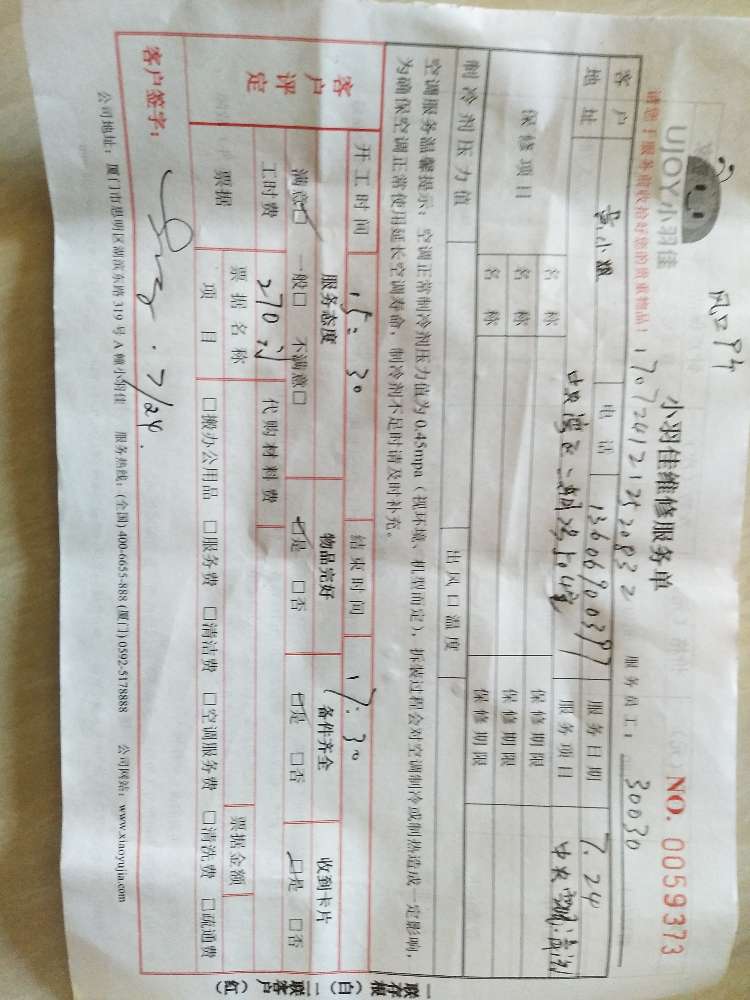 风口
UJOY小羽佳
小羽佳维修服务单
NO. 0059373
请您于服务前收拾好您的贵重物品！
170724121252083 2
服务员工：
30030
客户
黄小姐
电话
13606900397
服务日期
7.24
地址
服务项目
中央空调清洗
保修项目
名称
保修期限
名称
保修期限
名称
保修期限
制冷剂压力值
出风口温度
空调服务温馨提示：空调正常制冷剂压力值为0.45mpa（视环境、机型而定），拆装过程会对空调制冷或制热造成一定影响，
为确保空调正常使用延长空调寿命，制冷剂不足时请及时补充。
开工时间
15：30
结束时间
17：30
客户评定
服务态度
物品完好
备件齐全
收到卡片
满意□ 一般□ 不满意□
□是 □否
□是 □否
□是 □否
工时费
270
代购材料费
票据
票据名称
票据金额
项目
□搬办公用品 □服务费 □清洁费 □空调服务费 □清洗费 □疏通费
客户签字：
7/24.
公司地址：厦门市思明区湖滨东路319号A幢小羽佳 服务热线：(全国) 400-6655-888 (厦门) 0592-5178888 公司网站：www.xiaoyujia.com
一联存根（白）二联客户（红）